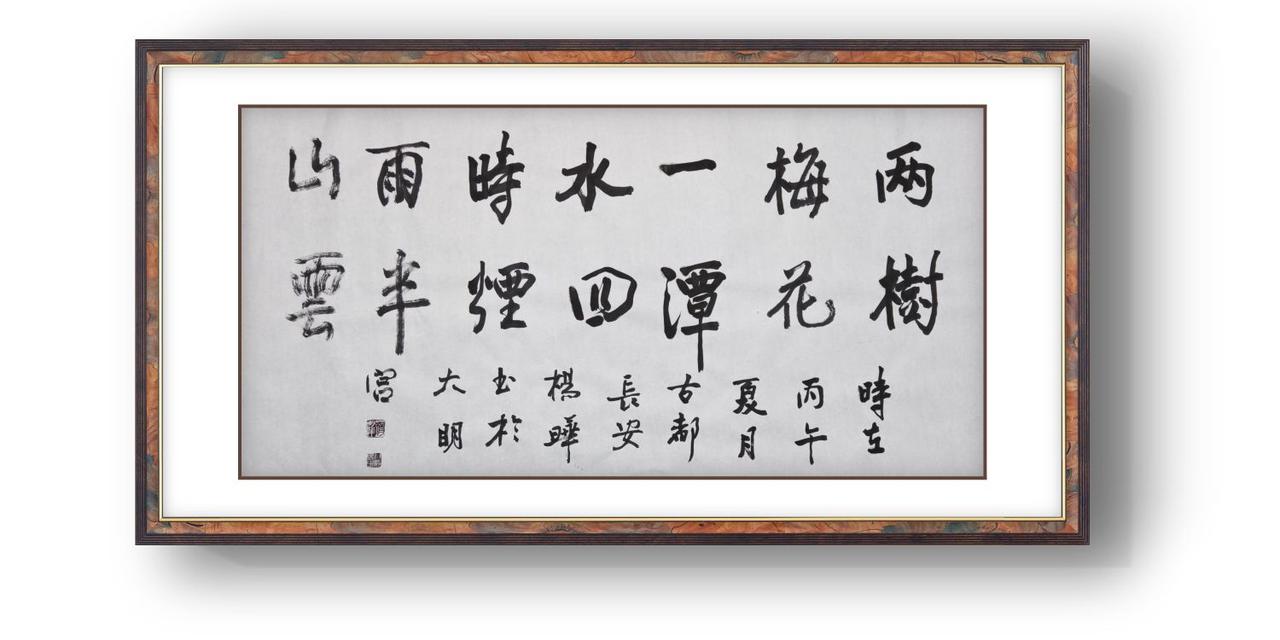 两樹
梅花
一潭
水四
時煙
雨半
山雲
時在
丙午
夏月
古都
長安
楊曄
书於
大明
宫